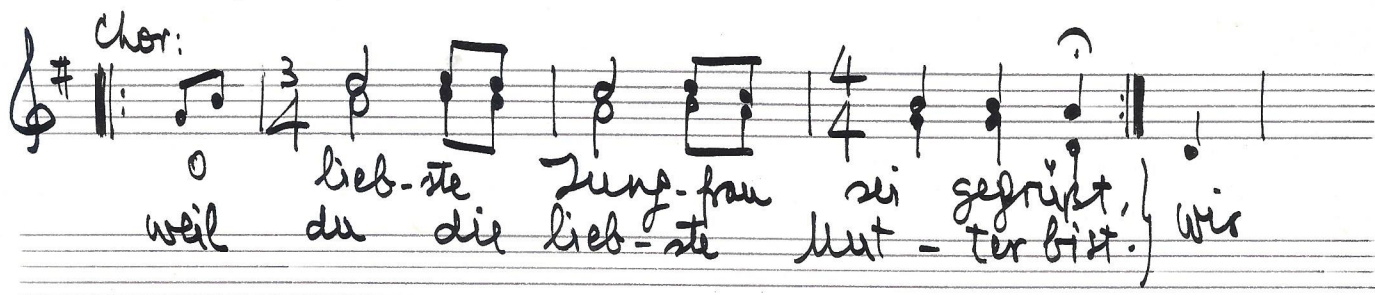 Chor:
3 4 4 4
O lieb-ste Jung-frau sei gegrüßt,
weil du die lieb-ste Mut-ter bist. wir